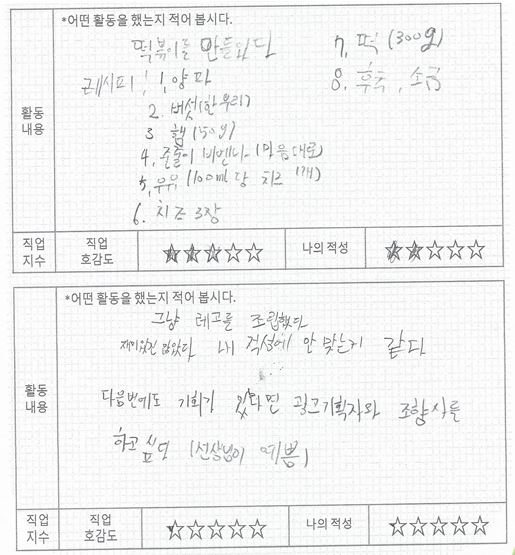 *어떤 활동을 했는지 적어 봅시다.
떡볶이를 만들었다
레시피 1. 양파
2. 버섯(한 우리)
3 햄(50g)
4. 줄줄이 비엔나 (마음대로)
5. 우유 (100ml 당 치즈 1개)
6. 치즈 3장
7. 떡 (300g)
8. 후추, 소금
활동
내용
직업
지수
직업
호감도
나의 적성
*어떤 활동을 했는지 적어 봅시다.
그냥 레고를 조립했다
재미있진 않았다 내 적성에 안 맞는거 같다
다음번에도 기회가 있다면 광고기획자와 조향사를
하고 싶다 (선생님이 예쁨)
활동
내용
직업
지수
직업
호감도
나의 적성